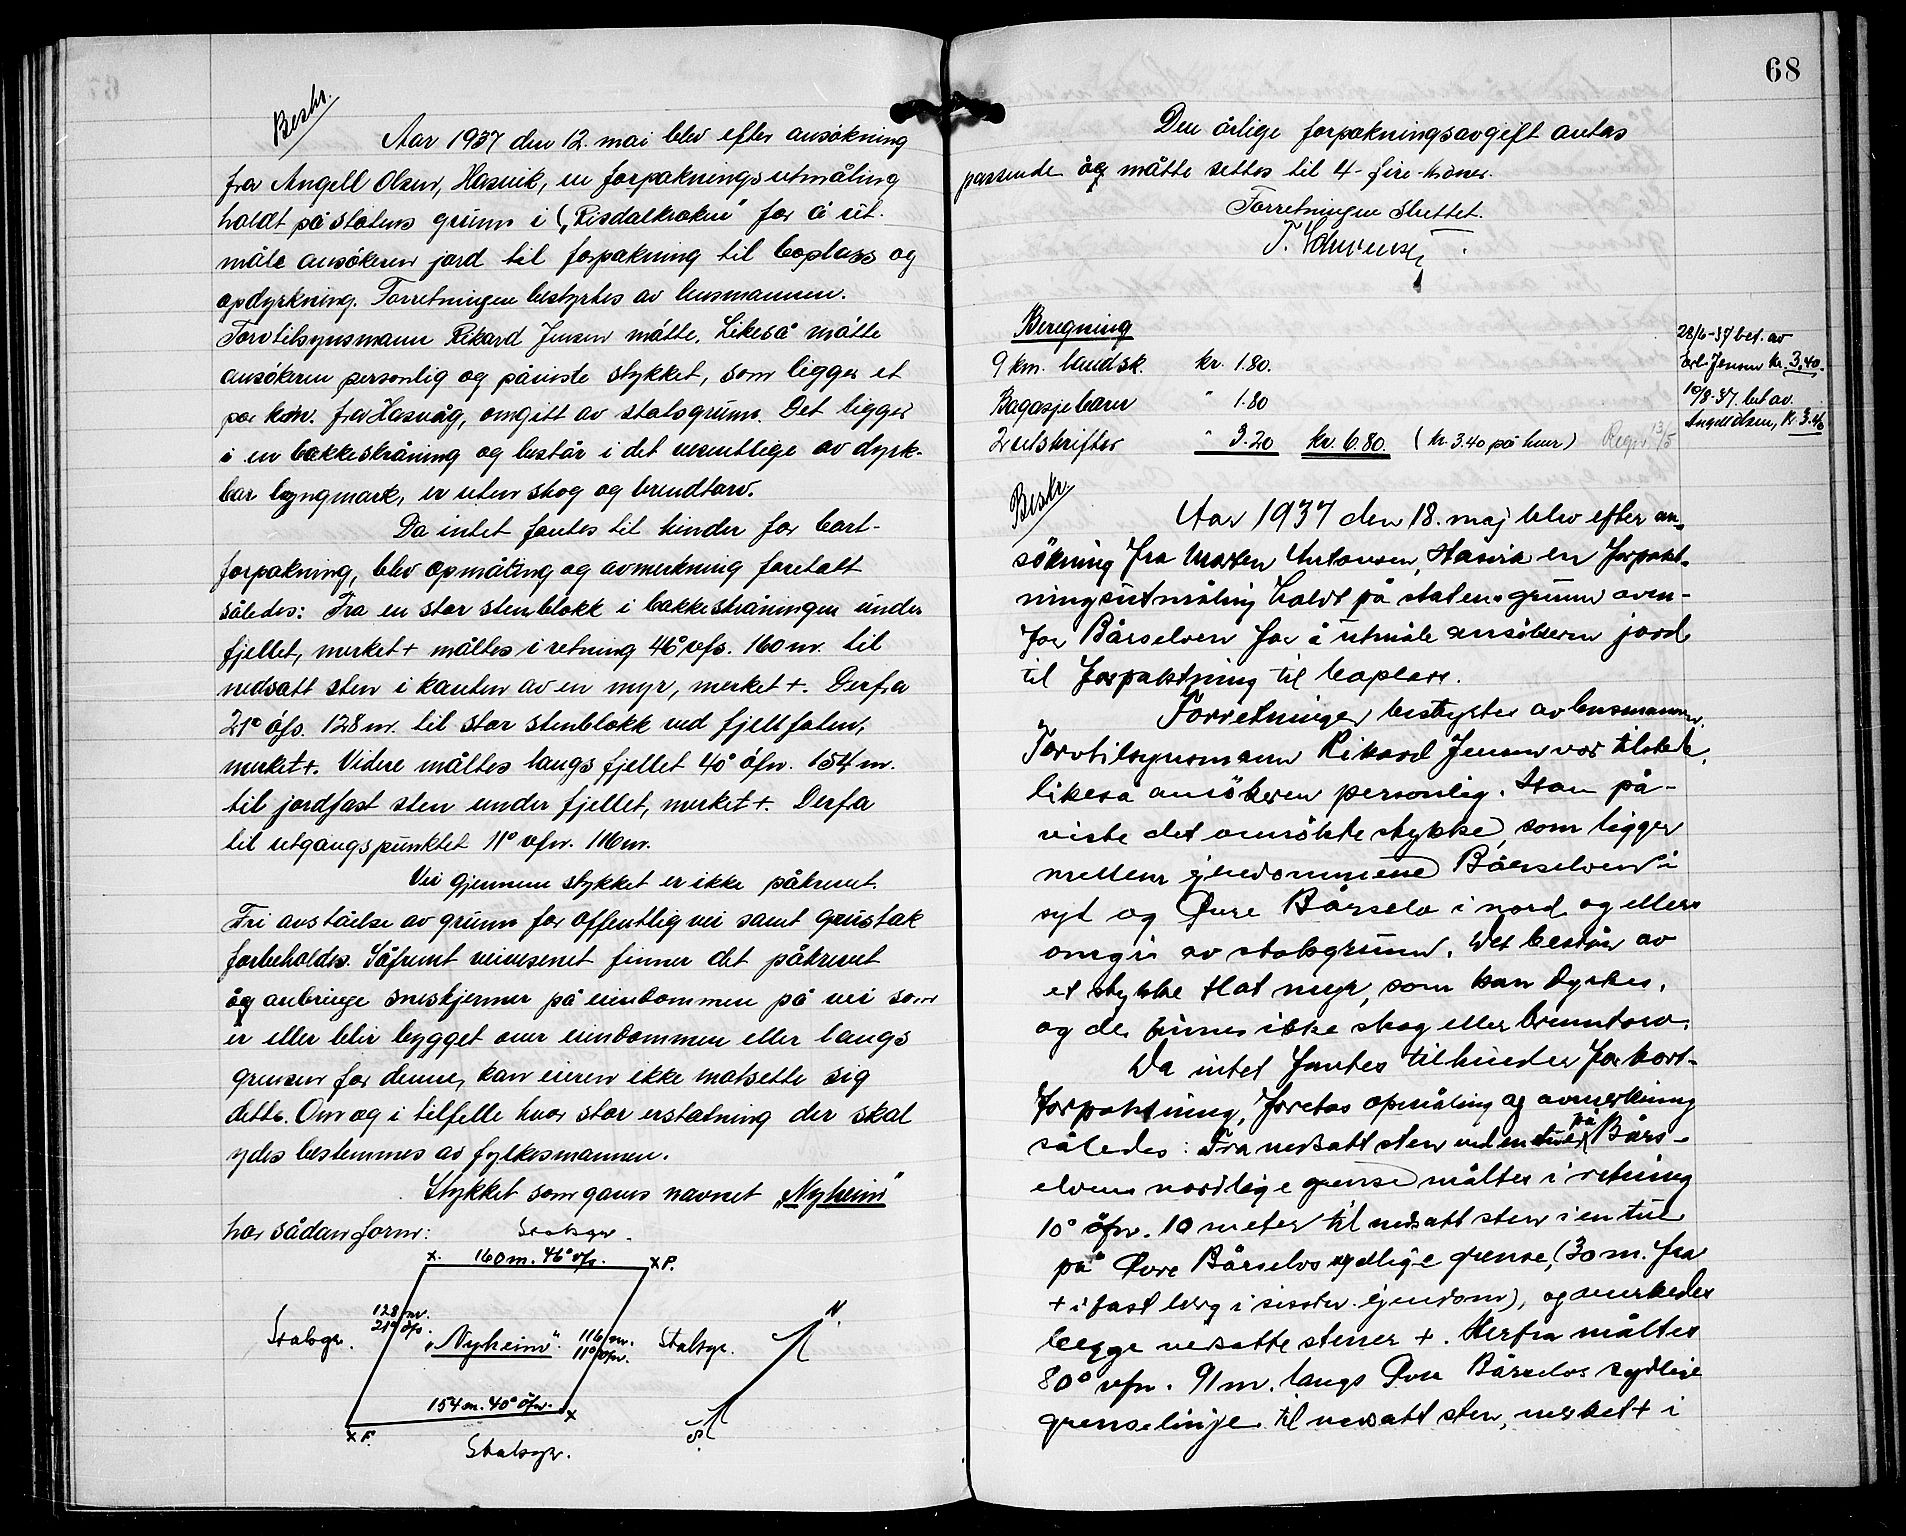 Beskr.
Aar 1937 den 12. mai blev efter ansökning
fra Angell Olsen, Hasvik, en forpakningsutmåling
holdt på statens grunn i „Risdalkroken" for å ut-
måle ansökeren jord til forpakning til boplass og
opdyrkning. Forretningen bestyrtes av lensmannen.
Torvtilsynsmann Rikard Jensen måtte. Likeså måtte
ansökeren personlig og påviste stykket, som ligger et
par km. fra Hasvåg, omgitt av statsgrunn. Det ligger
i en bakkeskråning og består i det vesentlige av dyrk-
bar lyngmark, er uten skog og brendtorv.
Da intet fantes til hinder for bort-
forpakning, blev opmåling og avmerkning foretatt
således: Fra en stor stenblokk i bakkeskråningen under
fjellet, merket + måltes i retning 46° vfs. 160 m. til
nedsatt sten i kanten av en myr, merket +. Derfra
21° öfs. 128 m. til stor stenblokk ved fjellfoten,
merket +. Videre måltes langs fjellet 40° öfn. 154 m.
til jordfast sten under fjellet, merket +. Derfra
til utgangspunktet 11° vfn. 116 m.
Vei gjennem stykket er ikke påkrevet.
Fri avståelse av grunn for offentlig vei samt grustak
forbeholdes. Såfremt veivesenet finner det påkrevet
åg anbringe sneskjermer på eiendommen på vei som
er eller blir bygget over eiendommen eller langs
grensen for denne, kan eieren ikke motsette sig
dette. Om og i tilfelle hvor stor erstatning der skal
ydes bestemmes av fylkesmannen.
Stykket som gaves navnet „Nyheim"
har sådan form:
Statsgr.
x. 160 m. 46° vfs. x F.
128 m.
21° öfs.
Statsgr.
„Nyheim".
116 m.
11° vfn.
Statsgr.
N.
154 m. 40° öfn.
x F. x
S.
Statsgr.
68
Den årlige forpakningsavgift antas
passende åg måtte settes til 4 - fire - kroner.
Forretningen sluttet.
Beregning
9 km. landsk. kr. 1.80.
Bagasjebærer " 1.80
2 utskrifter " 3.20 kr. 6.80. (kr. 3.40 på hver) Regn. 13/5
28/6-37 bet. av
Jensen kr. 3.40.
10/8-37. bet av.
Angell Olsen, kr. 3.40
Beskr.
Aar 1937 den 18. maj blev efter an-
sökning fra Morten Antonsen, Hasvik en forpakt-
ningsutmåling holdt på statens grunn oven-
for Bårselven for å utmåle ansökeren jord
til forpaktning til boplass.
Forretningen bestyrtes av lensmannen.
Torvtilsynsmann Rikard Jensen var tilstede,
likeså ansökeren personlig. Han på-
viste det ansökte stykke, som ligger
mellem ejendommene Bårselven i
syd og Övre Bårselv i nord og ellers
omgis av statsgrunn. Det består av
et stykke flat myr, som kan dyrkes,
og de finnes ikke skog eller brenntorv.
Da intet fantes til hinder for bort-
forpaktning, foretas opmåling og avmerkning
således: Fra nedsatt sten ved en tue på Bårs-
elvens nordlige grense måltes i retning
10° öfn. 10 meter til nedsatt sten i en tue
på Övre Bårselvs sydlige grense, (30 m. fra
+ i fast berg i sisstn. ejendom), og merkedes
begge nedsatte stener +. Herfra måltes
80° vfn. 91 m. langs Övre Bårselvs sydlige
grenselinje til nedsatt sten, merket + i